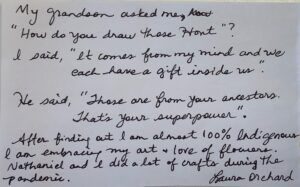 My grandson asked me,
"How do you draw those Mont"?
I said, "It comes from my mind and we
each have a gift inside us".
He said, "Those are from your ancestors.
That's your superpower".
After finding out I am almost 100% Indigenous
I am embracing my art & love of flowers.
Nathaniel and I did a lot of crafts during the
pandemic.
Laura Orchard